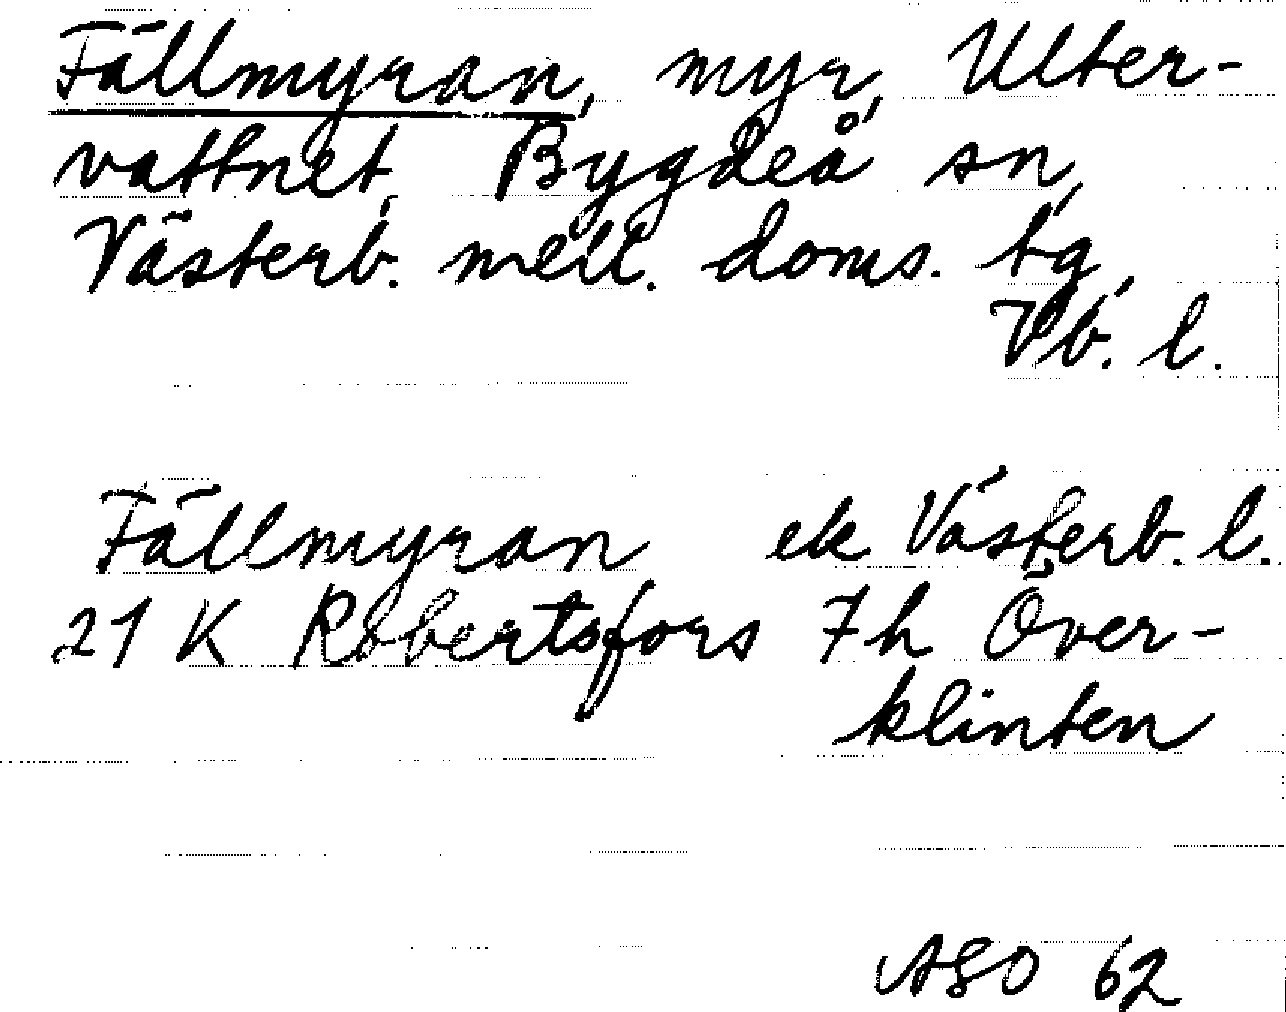 Fällmyran, myr, Ulter-
vattnet, Bygdeå sn,
Västerb. mell. doms. tg,
Vb. l.
Fällmyran ek Västerb. l.
21 K Robertsfors 7h Över-
klinten
ASO 62